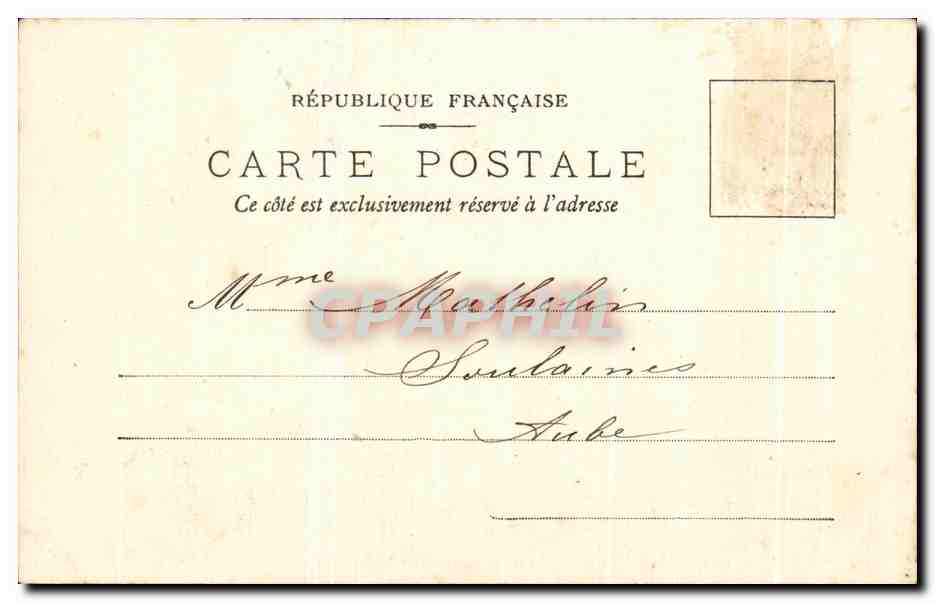 RÉPUBLIQUE FRANÇAISE
CARTE POSTALE
Ce côté est exclusivement réservé à l'adresse
Mme Mathelin
CPAPHIL
Soulaines
Aube